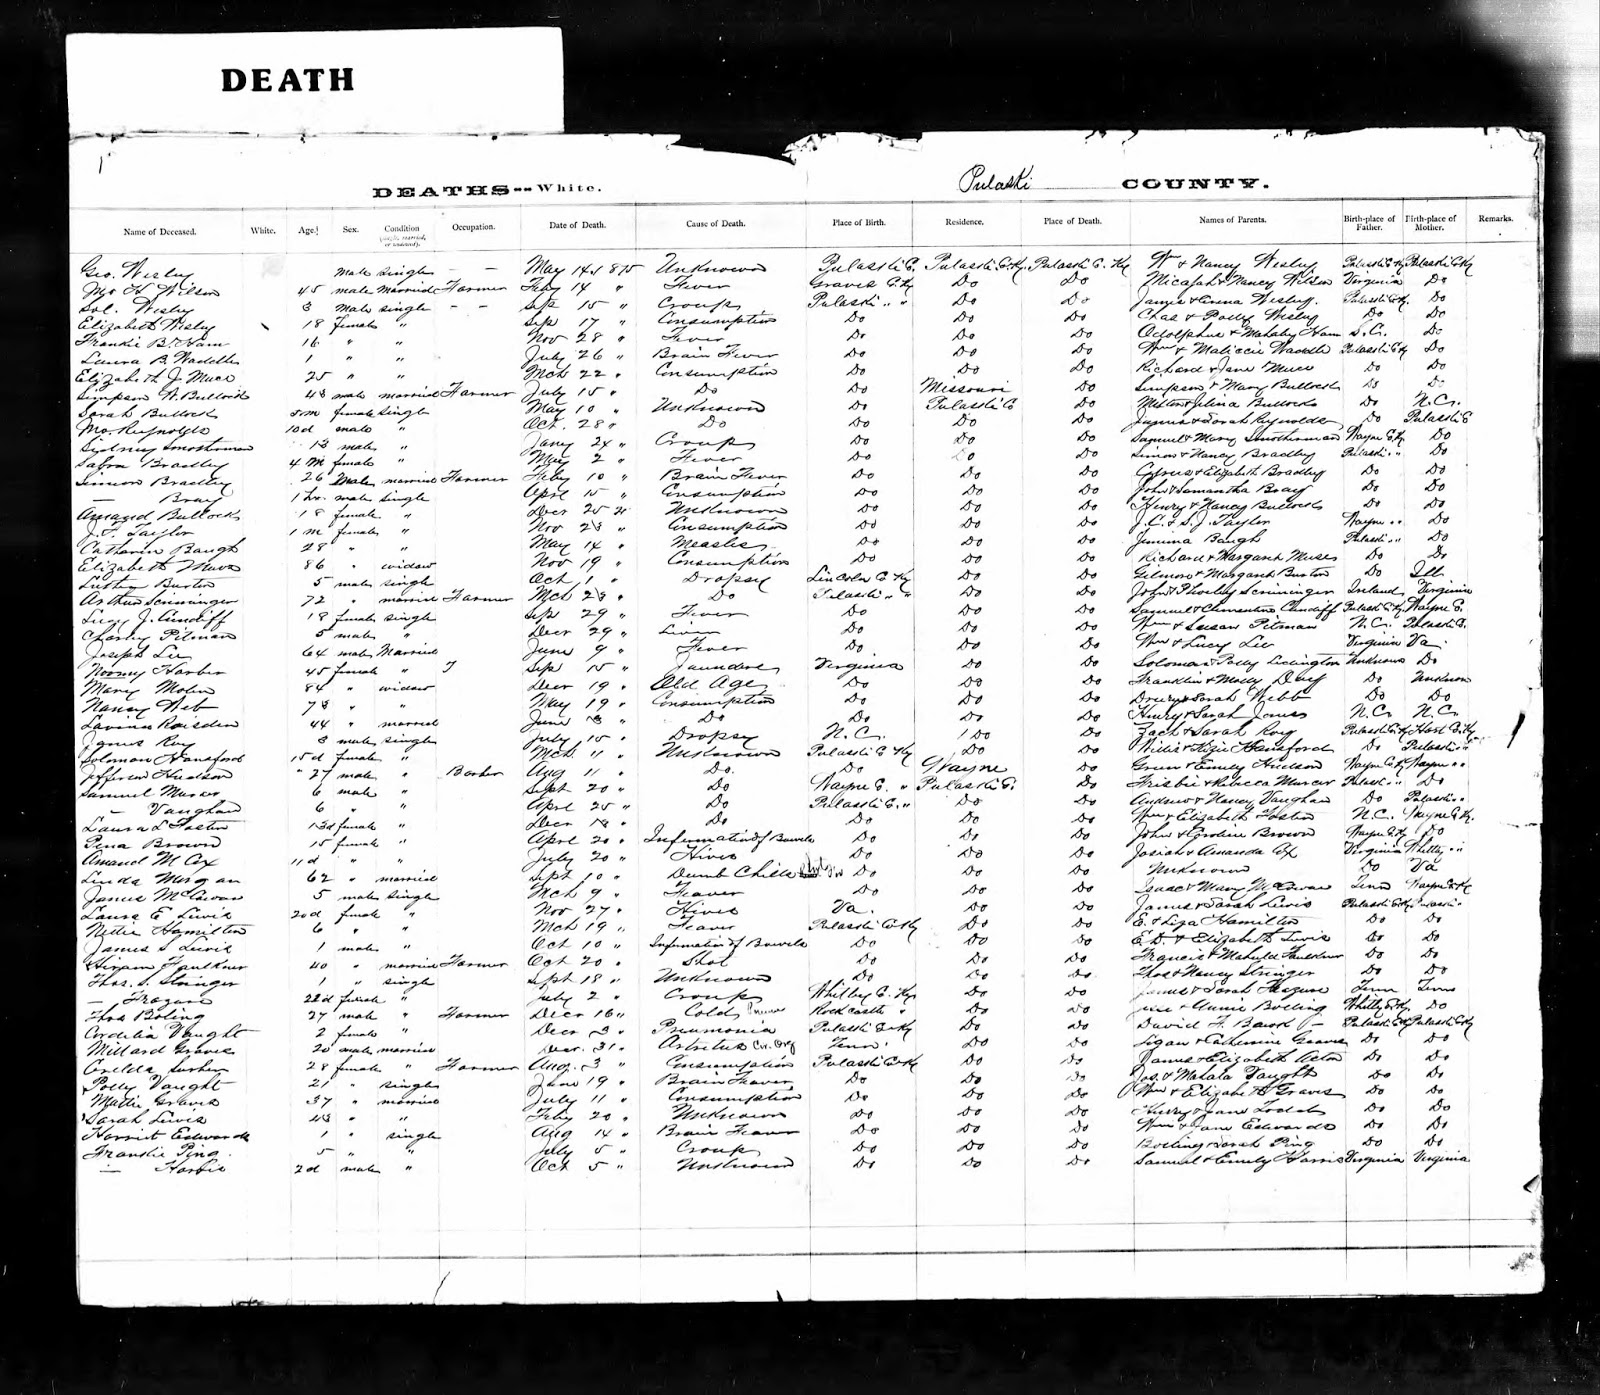 DEATH
1
DEATHS--White. Pulaski COUNTY.
Name of Deceased. White. Age. Sex. Condition (single, married, or widowed). Occupation. Date of Death. Cause of Death. Place of Birth. Residence. Place of Death. Names of Parents. Birth-place of Father. Birth-place of Mother. Remarks.
Geo. Wesley male single - - May 14 1875 Unknown Pulaski C. Pulaski C. Ky. Pulaski C. Ky Wm & Nancy Wesley Pulaski C Ky Pulaski C Ky
Wilson 45 male married Farmer Feby 14 " Fever Graves C. Ky Do Do Micajah & Nancy Wilson Virginia Do
Sol. Wesley 3 Male single - - Sep 15 " Croup Pulaski " " Do Do James & Emma Wesley Pulaski C Ky Do
Elizabeth Wesley 18 female " Sep 17 " Consumption Do Do Do Chas & Polly Wesley Do Do
Frankie B. Ham 16 " " Nov 28 " Fever Do Do Do Adolphus & Mahaley Ham S.C. Do
Laura B. Waddle 1 " " July 26 " Brain Fever Do Do Do Wm & Waddle Pulaski C Ky Do
Elizabeth J. 25 " " Mch 22 " Consumption Do Do Do Richard & Jane Do Do
Simpson Bullock 43 male married Farmer July 15 " Do Do Missouri Do Simpson & Mary Bullock Do Do
Sarah Bullock 5m female single May 10 " Unknown Do Pulaski C Do Milton & Bullock Do N.C.
Reynolds 10d male " Oct. 28 " Do Do Do Do James & Sarah Reynolds Do Pulaski C
Sidney Smotherman 13 male " Jany 24 " Croup Do Do Do Samuel & Mary Smotherman Wayne C Ky Do
Bradley 4 m female " May 2 " Fever Do Do Do Simon & Nancy Bradley Pulaski " " Do
Simon Bradley 26 Male married Farmer Feby 10 " Brain Fever Do Do Do Cyrus & Elizabeth Bradley Do Do
- Bray 1 hr. male single April 15 " Consumption Do Do Do John & Samantha Bray Do Do
Amand Bullock 18 female " Decr 25 " Unknown Do Do Do Henry & Nancy Bullock Do Do
J. F. Taylor 1 m female " Nov 23 " Consumption Do Do Do J.C. & S.J. Taylor Wayne " " Do
Catharin Baugh 28 " " May 14 " Measles Do Do Do Jemima Baugh Pulaski " " Do
Elizabeth 86 " widow Nov 19 " Consumption Do Do Do Richard & Margaret Do Do
Burton 5 male single Oct 1 " Dropsy Lincoln C Ky Do Do Gilmore & Margaret Burton Do Ill.
Arthur 72 " married Farmer Mch 23 " Do Pulaski " " Do Do John & Phoeby Ireland Virginia
Lucy J. Cundiff 18 female single Sep 29 " Fever Do Do Do Samuel & Clementine Cundiff Pulaski C Ky Wayne C.
Charley Pitman 5 male " Decr 29 " Liver Do Do Do Wm & Susan Pitman N.C. Pulaski C.
Joseph Lee 64 male Married June 9 " Fever Do Do Do Wm & Lucy Lee Virginia Va
45 female " Sep 15 " Jaundice Virginia Do Do Solomon & Polly Unknown Do
Mary 84 " widow Decr 19 " Old Age Do Do Do Franklin & Molly Do Unknown
Nancy Web 73 " " May 19 " Consumption Do Do Do Drury & Sarah Webb Do Do
Lavina 44 " married June " Do Do Do Do Henry & Sarah Jones N.C. N.C.
James Roy 3 male single July 15 " Dropsy N.C. Do Do Zach & Sarah Roy Pulaski C Ky Hart C. Ky
Solomon Hansford 15d female " Mch 11 " Unknown Pulaski C Ky Do Do Willis & Hansford Do Pulaski " "
Hudson 27 male " Barber Aug 11 " Do Do Wayne Do Green & Emily Hudson Wayne C Ky Wayne " "
Samuel 6 male " Sept 20 " Do Wayne C. " Pulaski C. Do Frisbie & Rebecca Pulaski " Do
- Vaughan 6 " " April 25 " Do Pulaski C. " " Do Do Andrew & Nancy Vaughan Do Pulaski " "
Laura L Foster 13d female " Decr " Do Do Do Do Wm & Elizabeth Foster N.C. Wayne C Ky.
Brown 15 female " April 20 " Infirmation of Bowels Do Do Do John & Brown Wayne C Ky Do
Amand M Cox 11d " " July 20 " Hives Do Do Do Josiah & Amanda Cox Virginia Whitley " "
Linda Morgan 62 " married Sept 10 " Dumb Chills Do Do Do Unknown Do Va
James McCowan 5 male Single Mch 9 " Feaver Do Do Do Isaac & Mary McCowan Tenn Wayne C Ky
Laura E. Lewis 20d female " Nov 27 " Hives Va. Do Do James & Sarah Lewis Pulaski C Ky Pulaski "
Nettie Hamilton 6 " " Mch 19 " Feaver Pulaski C Ky Do Do E. & Liza Hamilton Do Do
James S Lewis 1 male " Oct 10 " Infirmation of Bowels Do Do Do E.D. & Elizabeth Lewis Do Do
Hiram Faulkner 40 " married Farmer Oct 20 " Shot Do Do Do Francis & Faulkner Do Do
Thos. S. Stringer 1 " single Sept 18 " Unknown Do Do Do Thos & Nancy Stringer Do Do
- 22d female " July 2 " Croup Whitley C. Ky. Do Do James & Sarah Tenn Tenn
Thos Boling 27 male " Farmer Decr 16 " Cold Rockcastle " Do Do Jesse & Annie Bolling Whitley C Ky. Do
Cordelia Vaught 2 female " Decr 3 " Pneumonia Pulaski C Ky Do Do David F. - Pulaski C Ky Pulaski C Ky
Millard Graves 20 male married Decr. 31 " Tenn. Do Do & Catherine Graves Do Do
28 female " Farmer Aug. 3 " Consumption Pulaski C Ky Do Do James & Elizabeth Do Do
Polly Vaught 21 " single June 19 " Brain Feaver Do Do Do Jos. & Mahala Vaught Do Do
Mattie Graves 37 " married July 11 " Consumption Do Do Do Wm & Elizabeth Graves Do Do
Sarah Lewis 43 " " Feby 20 " Unknown Do Do Do Henry & Jane Do Do
Harriet Edwards 1 " single Aug 14 " Brain Feaver Do Do Do Wm & Jane Edwards Do Do
Frankie Ping 5 " " July 5 " Croup Do Do Do Bolling & Sarah Ping Do Do
- Harris 2d male " Oct 5 " Unknown Do Do Do Samuel & Emily Harris Virginia Virginia